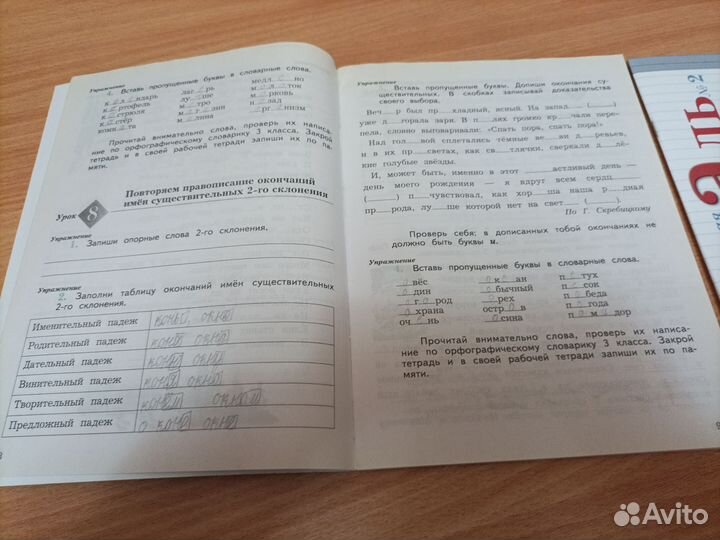 Упражнение
4. Вставь пропущенные буквы в словарные слова.
к а л е ндарь лаг е рь медл е но
к а ртофель лу___ше м о л ток
к а стрюля м е тро м о рковь
к о стёр м а г а зин н___лад
комн а та м а лина о рг___низм
Прочитай внимательно слова, проверь их написание по орфографическому словарику 3 класса. Закрой тетрадь и в своей рабочей тетради запиши их по памяти.
Урок 8
Повторяем правописание окончаний
имён существительных 2-го склонения
Упражнение
1. Запиши опорные слова 2-го склонения.
Упражнение
2. Заполни таблицу окончаний имён существительных
2-го склонения.
Именительный падеж
Родительный падеж
Дательный падеж
Винительный падеж
Творительный падеж
Предложный падеж
Упражнение
Вставь пропущенные буквы. Допиши окончания су-
ществительных. В скобках записывай доказательства
своего выбора.
Веч__р был пр__хладный, ясный. На запад___ (___)
уже д__горала заря. В п__лях громко кр__чали пере-
пела, словно выговаривали: «Спать пора, спать пора!».
Над гол__вой сплетались тёмные ве__ви д__ревьев,
и в их пр__светах, как св__тлячки, сверкали д__лё-
кие голубые звёзды.
И, может быть, именно в этот ___астливый день —
день моего рождения — я вдруг всем сердц___
(___) п__чувствовал, как хор__ша наша р__дная
пр__рода, лу__ше которой нет на свет___ (___).
По Г. Скребицкому
Проверь себя: в дописанных тобой окончаниях не
должно быть буквы и.
Упражнение
4. Вставь пропущенные буквы в словарные слова.
о вёс о к е ан п е тух
о дин о бычный п е сок
о г о род о рех п о беда
о храна остр о в п о года
оч е нь о сина п о м и дор
Прочитай внимательно слова, проверь их написа-
ние по орфографическому словарику 3 класса. Закрой
тетрадь и в своей рабочей тетради запиши их по па-
мяти.
№2
Avito